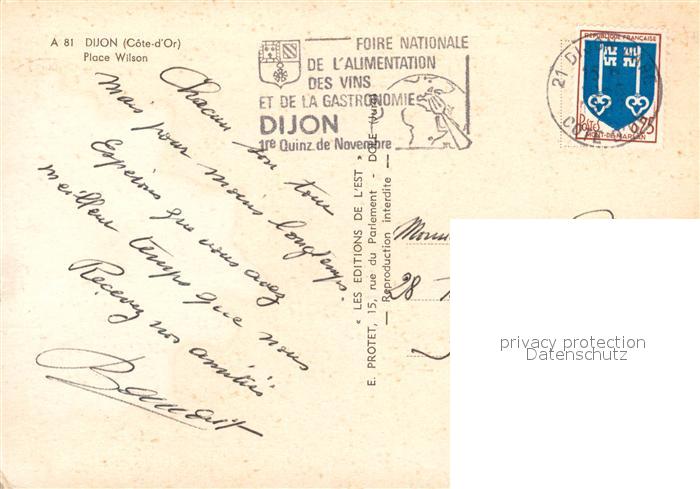 A 81 DIJON (Côte-d'Or)
Place Wilson
FOIRE NATIONALE
DE L'ALIMENTATION
DES VINS
ET DE LA GASTRONOMIE
DIJON
1re Quinz. de Novembre
REPUBLIQUE FRANÇAISE
Postes 0,25
MONT-DE-MARSAN
21 DIJON
COTE
Chacun son tour
mais pour moins longtemps.
Espérons que vous avez
meilleur temps que nous
Recevez nos amitiés
" LES EDITIONS DE L'EST "
E. PROTET, 15, rue du Parlement - DOLE (Jura)
— Reproduction interdite —
28
privacy protection
Datenschutz